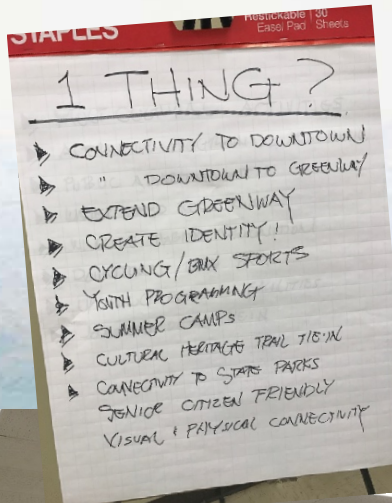 STAPLES
Restickable | 30
Easel Pad | Sheets
1 THING?
CONNECTIVITY TO DOWNTOWN
" DOWNTOWN TO GREENWAY
EXTEND GREENWAY
CREATE IDENTITY!
CYCLING/BMX SPORTS
YOUTH PROGRAMMING
SUMMER CAMPS
CULTURAL HERITAGE TRAIL TIE-IN
CONNECTIVITY TO STATE PARKS
SENIOR CITIZEN FRIENDLY
VISUAL + PHYSICAL CONNECTIVITY